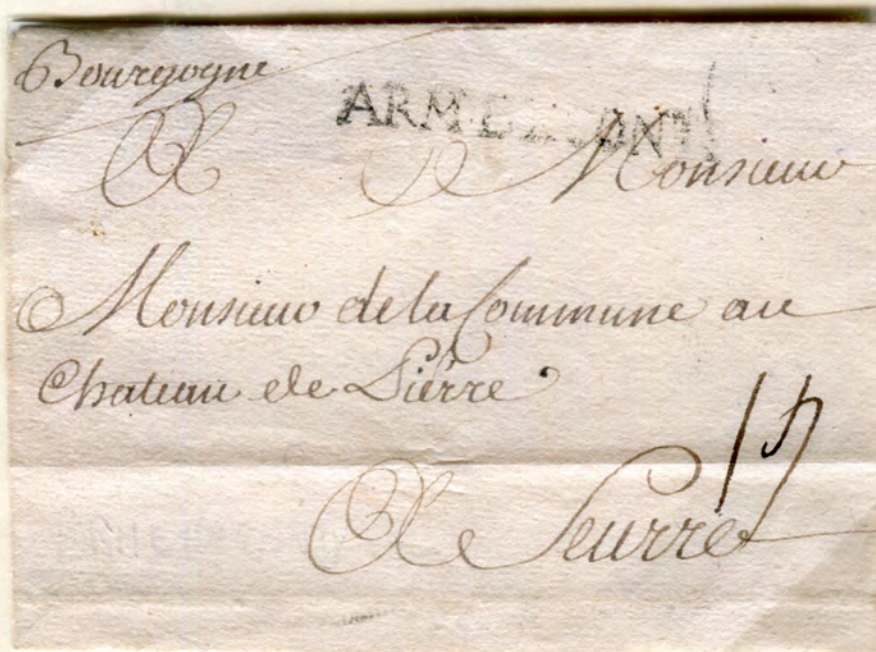 Bourgogne
ARM DE CONTI
A Monsieur
Monsieur de la Commune au
Chateau de Piérre
A Seurre